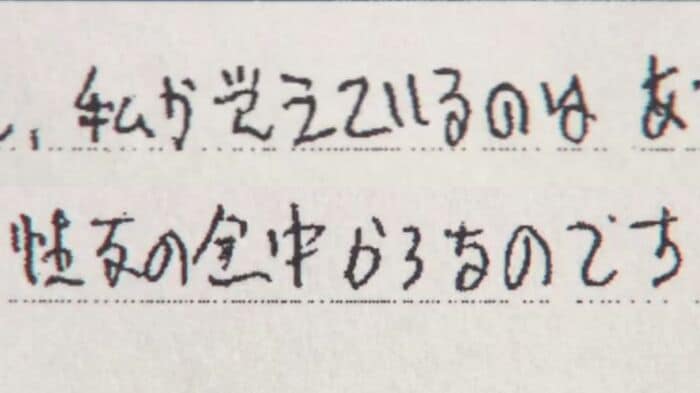 、私が覚えているのは あ
性交の途中からなのです